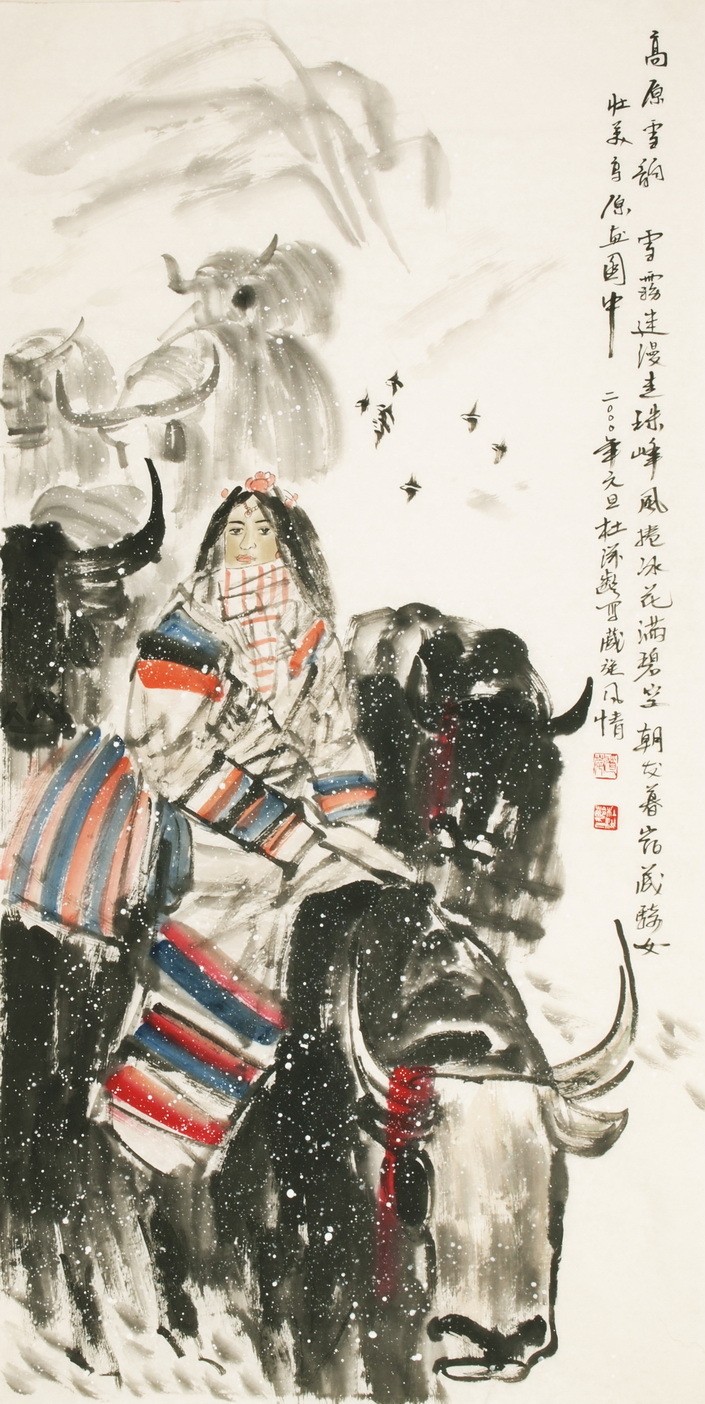 高原雪韵 雪雾迷漫走珠峰 风捲冰花满碧空 朝发暮宿藏骄女
壮美高原画图中 二〇〇〇年元旦 杜 写藏 风情